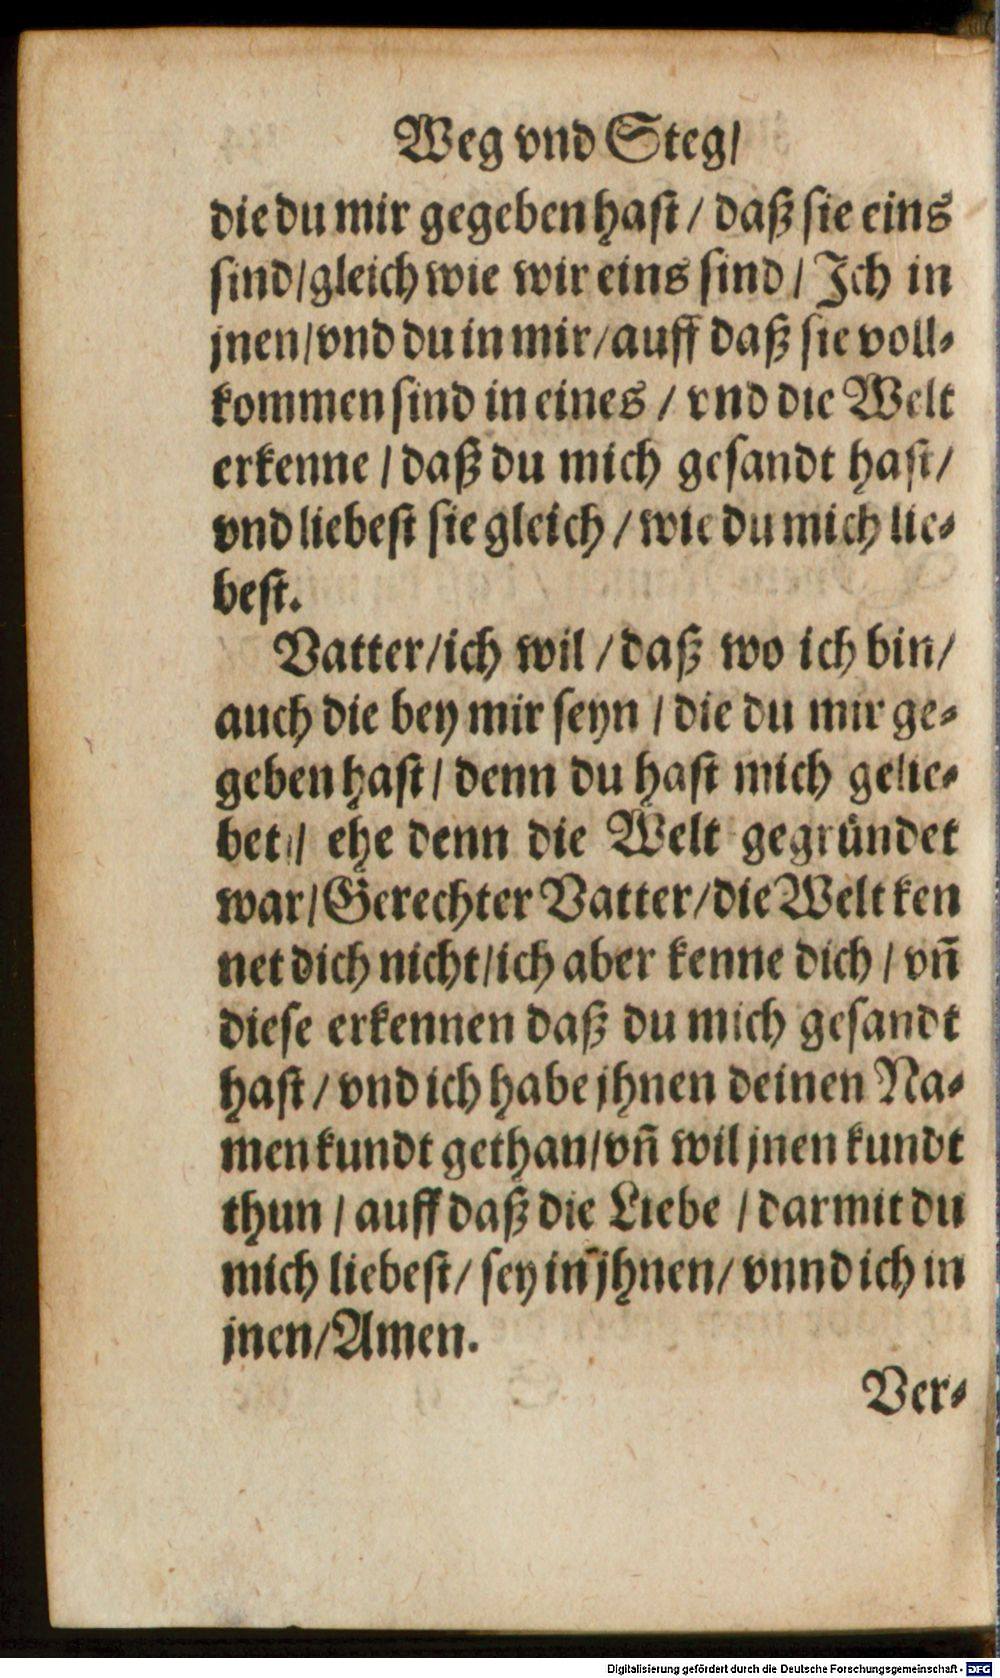 Weg vnd Steg/
die du mir gegeben hast / daß sie eins
sind/gleich wie wir eins sind / Ich in
jnen/vnd du in mir/auff daß sie voll-
kommen sind in eines / vnd die Welt
erkenne / daß du mich gesandt hast/
vnd liebest sie gleich / wie du mich lie-
best.
Vatter/ich wil / daß wo ich bin/
auch die bey mir seyn / die du mir ge-
geben hast / denn du hast mich gelie-
bet / ehe denn die Welt gegründet
war/Gerechter Vatter/die Welt ken
net dich nicht/ich aber kenne dich / vñ
diese erkennen daß du mich gesandt
hast / vnd ich habe jhnen deinen Na-
men kundt gethan/vñ wil jnen kundt
thun / auff daß die Liebe / darmit du
mich liebest/ sey in jhnen/ vnnd ich in
jnen/Amen.
Ver-
Digitalisierung gefördert durch die Deutsche Forschungsgemeinschaft - DFG